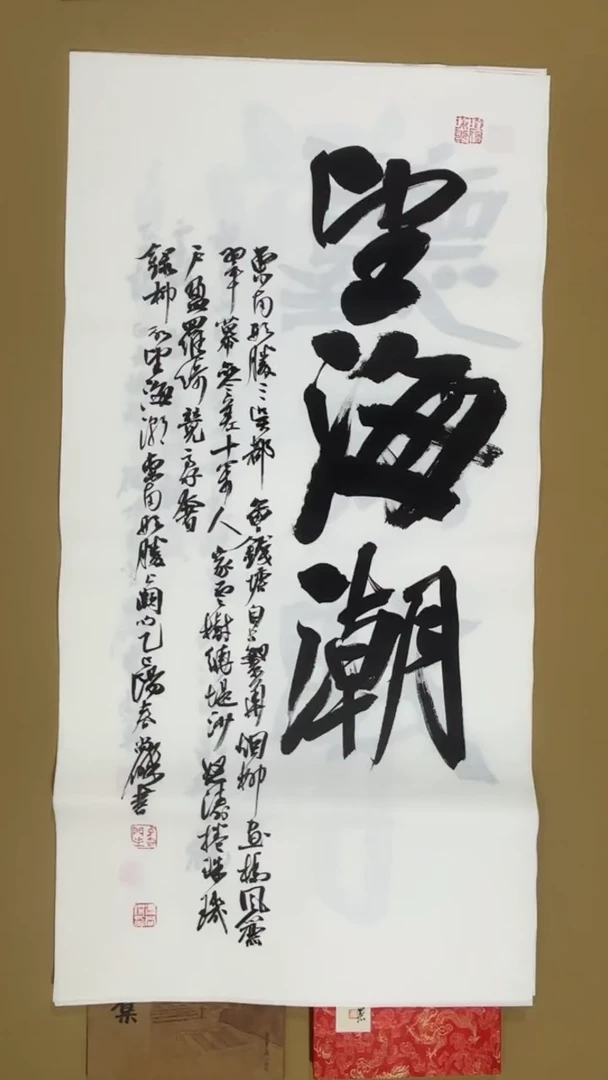 望海潮
東南形勝三吳都會錢塘自古繁華烟柳畫橋風簾
翠幕參差十萬人家雲樹繞堤沙怒濤捲珠璣
戶盈羅綺競豪奢
錄柳永望海潮東南形勝上闋乙巳陽春書
集